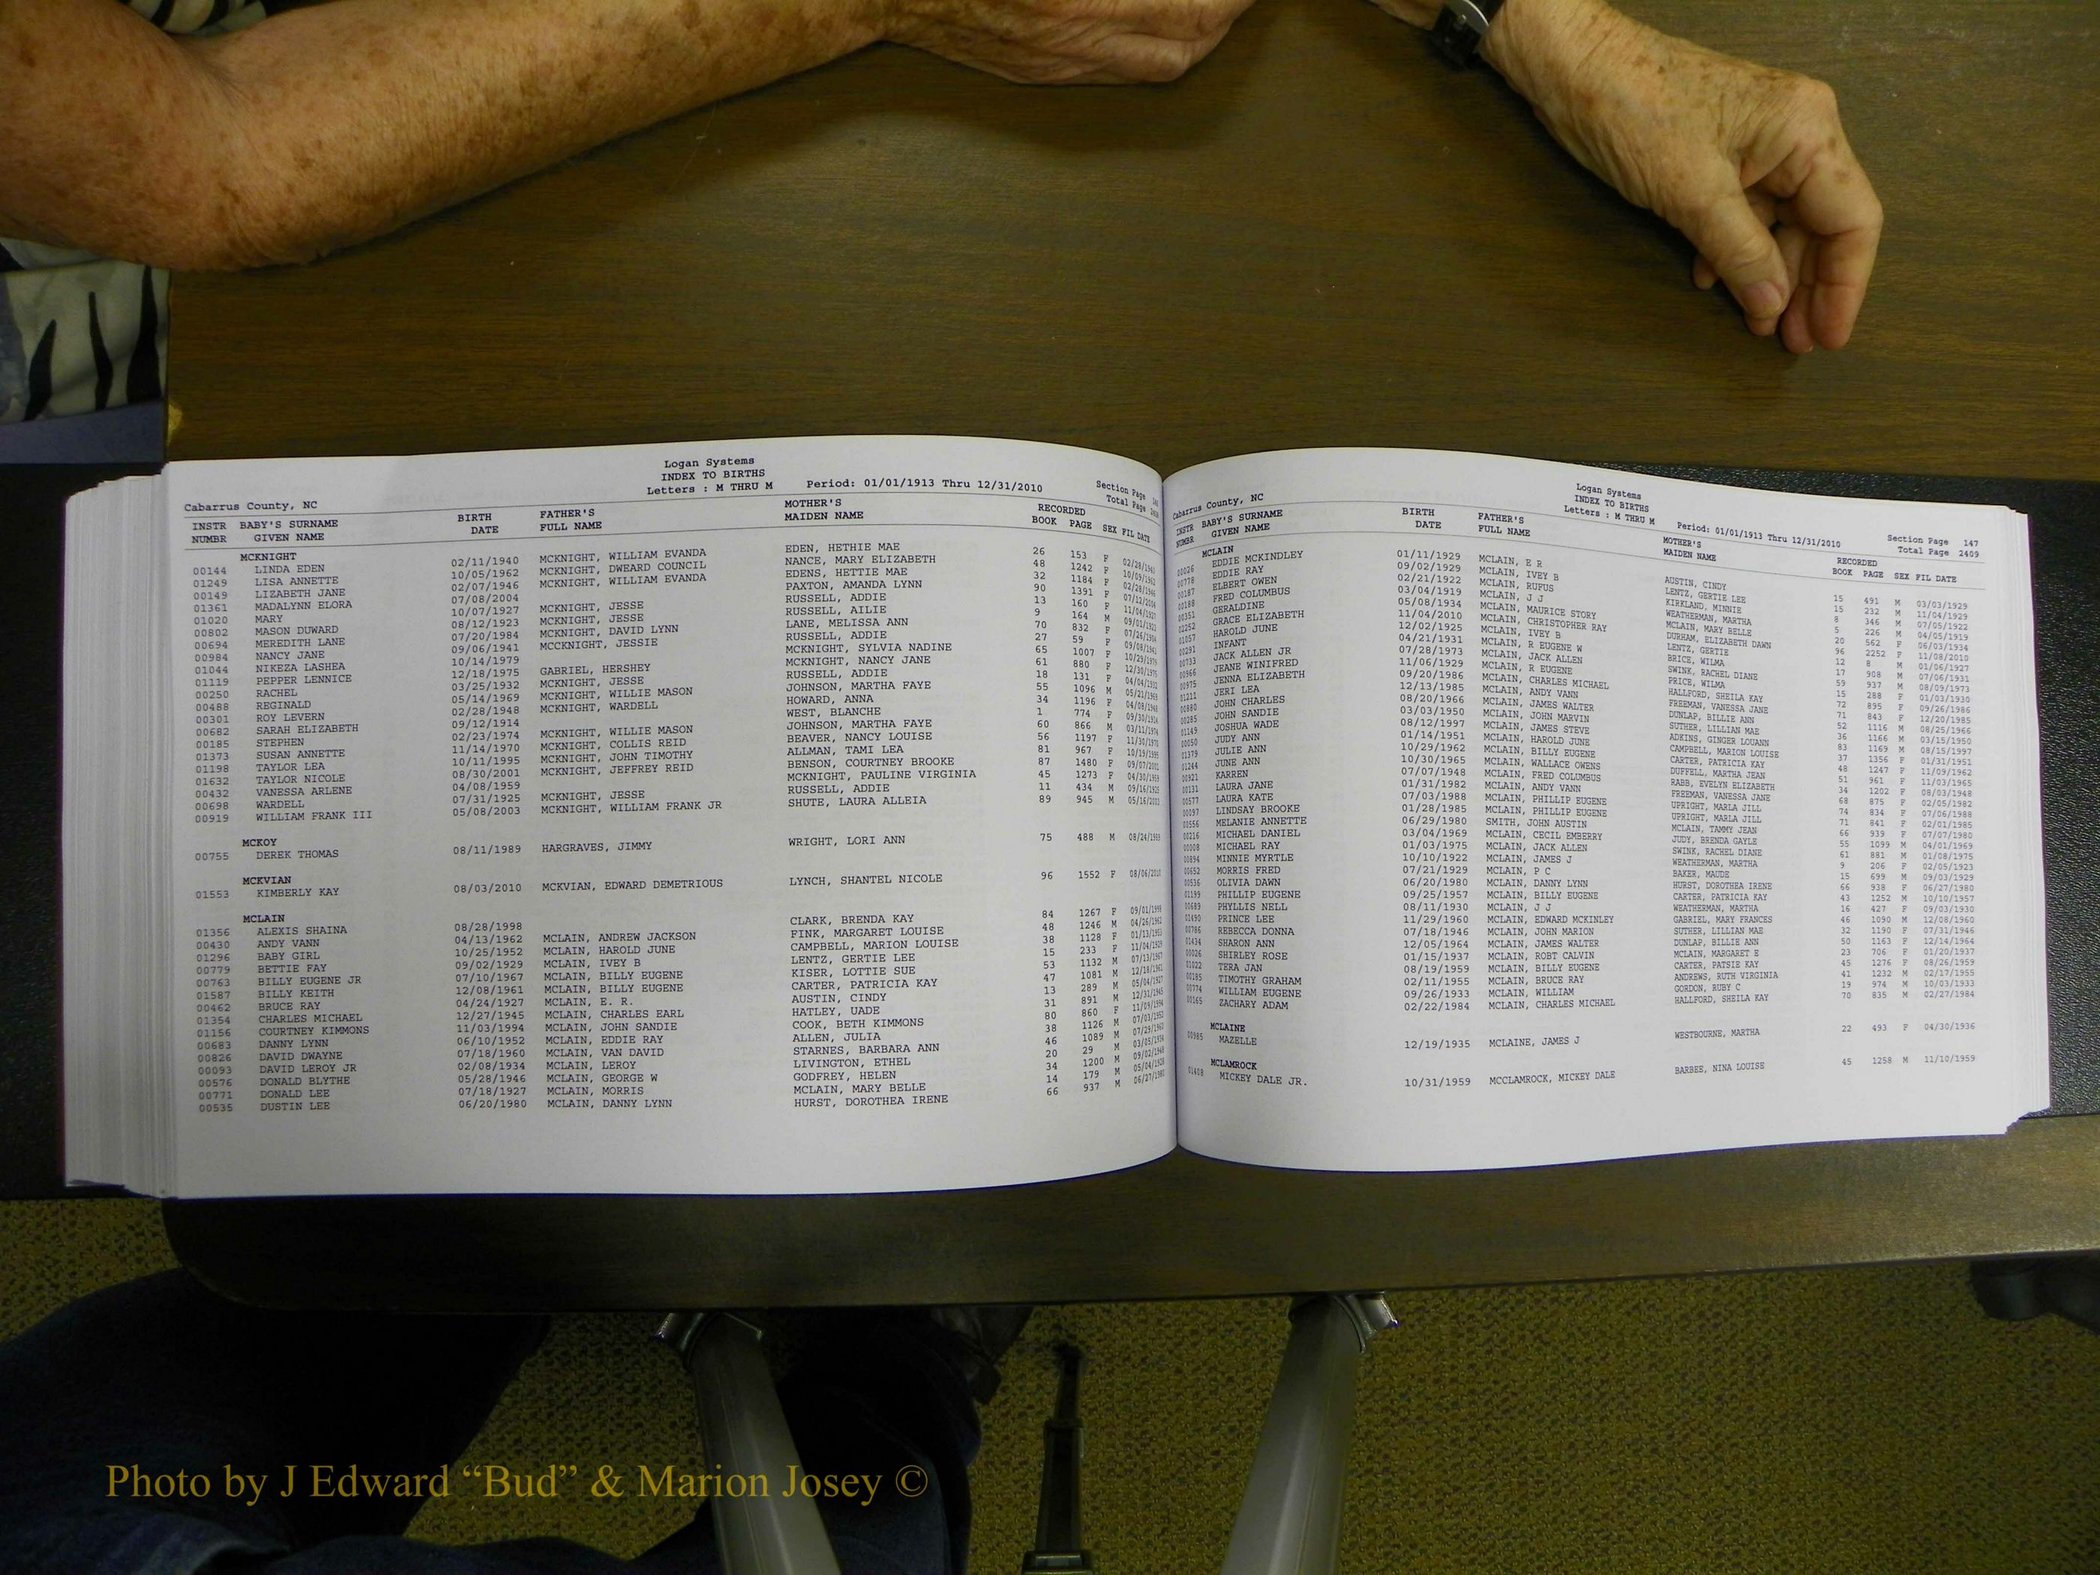 Logan Systems
INDEX TO BIRTHS
Cabarrus County, NC Letters : M THRU M Period: 01/01/1913 Thru 12/31/2010 Section Page
Total Page
INSTR BABY'S SURNAME BIRTH FATHER'S MOTHER'S RECORDED
NUMBR GIVEN NAME DATE FULL NAME MAIDEN NAME BOOK PAGE SEX FIL DATE
MCKNIGHT
00144 LINDA EDEN 02/11/1940 MCKNIGHT, WILLIAM EVANDA EDEN, HETHIE MAE 26 153 F 02/28/1940
01249 LISA ANNETTE 10/05/1962 MCKNIGHT, DWEARD COUNCIL NANCE, MARY ELIZABETH 48 1242 F 10/09/1962
00149 LIZABETH JANE 02/07/1946 MCKNIGHT, WILLIAM EVANDA EDENS, HETTIE MAE 32 1184 F 02/28/1946
01361 MADALYNN ELORA 07/08/2004 PAXTON, AMANDA LYNN 90 1391 F 07/12/2004
01020 MARY 10/07/1927 MCKNIGHT, JESSE RUSSELL, ADDIE 13 160 F 11/04/1927
00802 MASON DUWARD 08/12/1923 MCKNIGHT, JESSE RUSSELL, AILIE 9 164 M 09/01/1923
00694 MEREDITH LANE 07/20/1984 MCKNIGHT, DAVID LYNN LANE, MELISSA ANN 70 832 F 07/26/1984
00984 NANCY JANE 09/06/1941 MCCKNIGHT, JESSIE RUSSELL, ADDIE 27 59 F 09/08/1941
01044 NIKEZA LASHEA 10/14/1979 MCKNIGHT, SYLVIA NADINE 65 1007 F 10/29/1979
01119 PEPPER LENNICE 12/18/1975 GABRIEL, HERSHEY MCKNIGHT, NANCY JANE 61 880 F 12/30/1975
00250 RACHEL 03/25/1932 MCKNIGHT, JESSE RUSSELL, ADDIE 18 131 F 04/04/1932
00488 REGINALD 05/14/1969 MCKNIGHT, WILLIE MASON JOHNSON, MARTHA FAYE 55 1096 M 05/21/1969
00301 ROY LEVERN 02/28/1948 MCKNIGHT, WARDELL HOWARD, ANNA 34 1196 F 04/08/1948
00682 SARAH ELIZABETH 09/12/1914 WEST, BLANCHE 1 774 F 09/30/1914
00185 STEPHEN 02/23/1974 MCKNIGHT, WILLIE MASON JOHNSON, MARTHA FAYE 60 866 M 03/11/1974
01373 SUSAN ANNETTE 11/14/1970 MCKNIGHT, COLLIS REID BEAVER, NANCY LOUISE 56 1197 F 11/30/1970
01198 TAYLOR LEA 10/11/1995 MCKNIGHT, JOHN TIMOTHY ALLMAN, TAMI LEA 81 967 F 10/19/1995
01632 TAYLOR NICOLE 08/30/2001 MCKNIGHT, JEFFREY REID BENSON, COURTNEY BROOKE 87 1480 F 09/07/2001
00432 VANESSA ARLENE 04/08/1959 MCKNIGHT, PAULINE VIRGINIA 45 1273 F 04/30/1959
00698 WARDELL 07/31/1925 MCKNIGHT, JESSE RUSSELL, ADDIE 11 434 M 09/16/1925
00919 WILLIAM FRANK III 05/08/2003 MCKNIGHT, WILLIAM FRANK JR SHUTE, LAURA ALLEIA 89 945 M 05/16/2003
MCKOY
00755 DEREK THOMAS 08/11/1989 HARGRAVES, JIMMY WRIGHT, LORI ANN 75 488 M 08/24/1989
MCKVIAN
01553 KIMBERLY KAY 08/03/2010 MCKVIAN, EDWARD DEMETRIOUS LYNCH, SHANTEL NICOLE 96 1552 F 08/06/2010
MCLAIN
01356 ALEXIS SHAINA 08/28/1998 CLARK, BRENDA KAY 84 1267 F 09/01/1998
00430 ANDY VANN 04/13/1962 MCLAIN, ANDREW JACKSON FINK, MARGARET LOUISE 48 1246 M 04/26/1962
01296 BABY GIRL 10/25/1952 MCLAIN, HAROLD JUNE CAMPBELL, MARION LOUISE 38 1128 F 01/13/1953
00779 BETTIE FAY 09/02/1929 MCLAIN, IVEY B LENTZ, GERTIE LEE 15 233 F 11/04/1929
00763 BILLY EUGENE JR 07/10/1967 MCLAIN, BILLY EUGENE KISER, LOTTIE SUE 53 1132 M 07/13/1967
01587 BILLY KEITH 12/08/1961 MCLAIN, BILLY EUGENE CARTER, PATRICIA KAY 47 1081 M 12/18/1961
00462 BRUCE RAY 04/24/1927 MCLAIN, E. R. AUSTIN, CINDY 13 289 M 05/04/1927
01354 CHARLES MICHAEL 12/27/1945 MCLAIN, CHARLES EARL HATLEY, UADE 31 891 M 12/31/1945
01156 COURTNEY KIMMONS 11/03/1994 MCLAIN, JOHN SANDIE COOK, BETH KIMMONS 80 860 F 11/09/1994
00683 DANNY LYNN 06/10/1952 MCLAIN, EDDIE RAY ALLEN, JULIA 38 1126 M 07/03/1952
00826 DAVID DWAYNE 07/18/1960 MCLAIN, VAN DAVID STARNES, BARBARA ANN 46 1089 M 07/29/1960
00093 DAVID LEROY JR 02/08/1934 MCLAIN, LEROY LIVINGTON, ETHEL 20 29 M 03/05/1934
00576 DONALD BLYTHE 05/28/1946 MCLAIN, GEORGE W GODFREY, HELEN 34 1200 M 09/02/1948
00771 DONALD LEE 07/18/1927 MCLAIN, MORRIS MCLAIN, MARY BELLE 14 179 M 05/04/1928
00535 DUSTIN LEE 06/20/1980 MCLAIN, DANNY LYNN HURST, DOROTHEA IRENE 66 937 M 06/27/1980
Logan Systems
INDEX TO BIRTHS
Cabarrus County, NC Letters : M THRU M Period: 01/01/1913 Thru 12/31/2010 Section Page 147
Total Page 2409
INSTR BABY'S SURNAME BIRTH FATHER'S MOTHER'S RECORDED
NUMBR GIVEN NAME DATE FULL NAME MAIDEN NAME BOOK PAGE SEX FIL DATE
MCLAIN
00026 EDDIE MCKINDLEY 01/11/1929 MCLAIN, E R AUSTIN, CINDY 15 491 M 03/03/1929
00778 EDDIE RAY 09/02/1929 MCLAIN, IVEY B LENTZ, GERTIE LEE 15 232 M 11/04/1929
00187 ELBERT OWEN 02/21/1922 MCLAIN, RUFUS KIRKLAND, MINNIE 8 346 M 07/05/1922
00188 FRED COLUMBUS 03/04/1919 MCLAIN, J J WEATHERMAN, MARTHA 5 226 M 04/05/1919
00351 GERALDINE 05/08/1934 MCLAIN, MAURICE STORY MCLAIN, MARY BELLE 20 562 F 06/03/1934
02252 GRACE ELIZABETH 11/04/2010 MCLAIN, CHRISTOPHER RAY DURHAM, ELIZABETH DAWN 96 2252 F 11/08/2010
01057 HAROLD JUNE 12/02/1925 MCLAIN, IVEY B LENTZ, GERTIE 12 8 M 01/06/1927
00291 INFANT 04/21/1931 MCLAIN, R EUGENE W BRICE, WILMA 17 908 M 07/06/1931
00733 JACK ALLEN JR 07/28/1973 MCLAIN, JACK ALLEN SWINK, RACHEL DIANE 59 937 M 08/09/1973
00966 JEANE WINIFRED 11/06/1929 MCLAIN, R EUGENE PRICE, WILMA 15 288 F 01/03/1930
00975 JENNA ELIZABETH 09/20/1986 MCLAIN, CHARLES MICHAEL HALLFORD, SHEILA KAY 72 895 F 09/26/1986
01211 JERI LEA 12/13/1985 MCLAIN, ANDY VANN FREEMAN, VANESSA JANE 71 843 F 12/20/1985
00880 JOHN CHARLES 08/20/1966 MCLAIN, JAMES WALTER DUNLAP, BILLIE ANN 52 1116 M 08/25/1966
00285 JOHN SANDIE 03/03/1950 MCLAIN, JOHN MARVIN SUTHER, LILLIAN MAE 36 1166 M 03/15/1950
01149 JOSHUA WADE 08/12/1997 MCLAIN, JAMES STEVE ADKINS, GINGER LOUANN 83 1169 M 08/15/1997
00050 JUDY ANN 01/14/1951 MCLAIN, HAROLD JUNE CAMPBELL, MARION LOUISE 37 1356 F 01/31/1951
01379 JULIE ANN 10/29/1962 MCLAIN, BILLY EUGENE CARTER, PATRICIA KAY 48 1247 F 11/09/1962
01244 JUNE ANN 10/30/1965 MCLAIN, WALLACE OWENS DUFFELL, MARTHA JEAN 51 961 F 11/03/1965
00921 KARREN 07/07/1948 MCLAIN, FRED COLUMBUS RABB, EVELYN ELIZABETH 34 1202 F 08/03/1948
00131 LAURA JANE 01/31/1982 MCLAIN, ANDY VANN FREEMAN, VANESSA JANE 68 875 F 02/05/1982
00577 LAURA KATE 07/03/1988 MCLAIN, PHILLIP EUGENE UPRIGHT, MARLA JILL 74 834 F 07/06/1988
00097 LINDSAY BROOKE 01/28/1985 MCLAIN, PHILLIP EUGENE UPRIGHT, MARLA JILL 71 841 F 02/01/1985
00556 MELANIE ANNETTE 06/29/1980 SMITH, JOHN AUSTIN MCLAIN, TAMMY JEAN 66 939 F 07/07/1980
00216 MICHAEL DANIEL 03/04/1969 MCLAIN, CECIL EMBERRY JUDY, BRENDA GAYLE 55 1099 M 04/01/1969
00008 MICHAEL RAY 01/03/1975 MCLAIN, JACK ALLEN SWINK, RACHEL DIANE 61 881 M 01/08/1975
00894 MINNIE MYRTLE 10/10/1922 MCLAIN, JAMES J WEATHERMAN, MARTHA 9 206 F 02/05/1923
00652 MORRIS FRED 07/21/1929 MCLAIN, P C BAKER, MAUDE 15 699 M 09/03/1929
00536 OLIVIA DAWN 06/20/1980 MCLAIN, DANNY LYNN HURST, DOROTHEA IRENE 66 938 F 06/27/1980
01199 PHILLIP EUGENE 09/25/1957 MCLAIN, BILLY EUGENE CARTER, PATRICIA KAY 43 1252 M 10/10/1957
00689 PHYLLIS NELL 08/11/1930 MCLAIN, J J WEATHERMAN, MARTHA 16 427 F 09/03/1930
01490 PRINCE LEE 11/29/1960 MCLAIN, EDWARD MCKINLEY GABRIEL, MARY FRANCES 46 1090 M 12/08/1960
00786 REBECCA DONNA 07/18/1946 MCLAIN, JOHN MARION SUTHER, LILLIAN MAE 32 1190 F 07/31/1946
01434 SHARON ANN 12/05/1964 MCLAIN, JAMES WALTER DUNLAP, BILLIE ANN 50 1163 F 12/14/1964
00026 SHIRLEY ROSE 01/15/1937 MCLAIN, ROBT CALVIN MCLAIN, MARGARET E 23 706 F 01/20/1937
01022 TERA JAN 08/19/1959 MCLAIN, BILLY EUGENE CARTER, PATSIE KAY 45 1276 F 08/26/1959
00185 TIMOTHY GRAHAM 02/11/1955 MCLAIN, BRUCE RAY ANDREWS, RUTH VIRGINIA 41 1232 M 02/17/1955
00774 WILLIAM EUGENE 09/26/1933 MCLAIN, WILLIAM GORDON, RUBY C 19 974 M 10/03/1933
00165 ZACHARY ADAM 02/22/1984 MCLAIN, CHARLES MICHAEL HALLFORD, SHEILA KAY 70 835 M 02/27/1984
MCLAINE
00985 MAZELLE 12/19/1935 MCLAINE, JAMES J WESTBOURNE, MARTHA 22 493 F 04/30/1936
MCLAMROCK
01408 MICKEY DALE JR. 10/31/1959 MCCLAMROCK, MICKEY DALE BARBEE, NINA LOUISE 45 1258 M 11/10/1959
Photo by J Edward “Bud” & Marion Josey ©